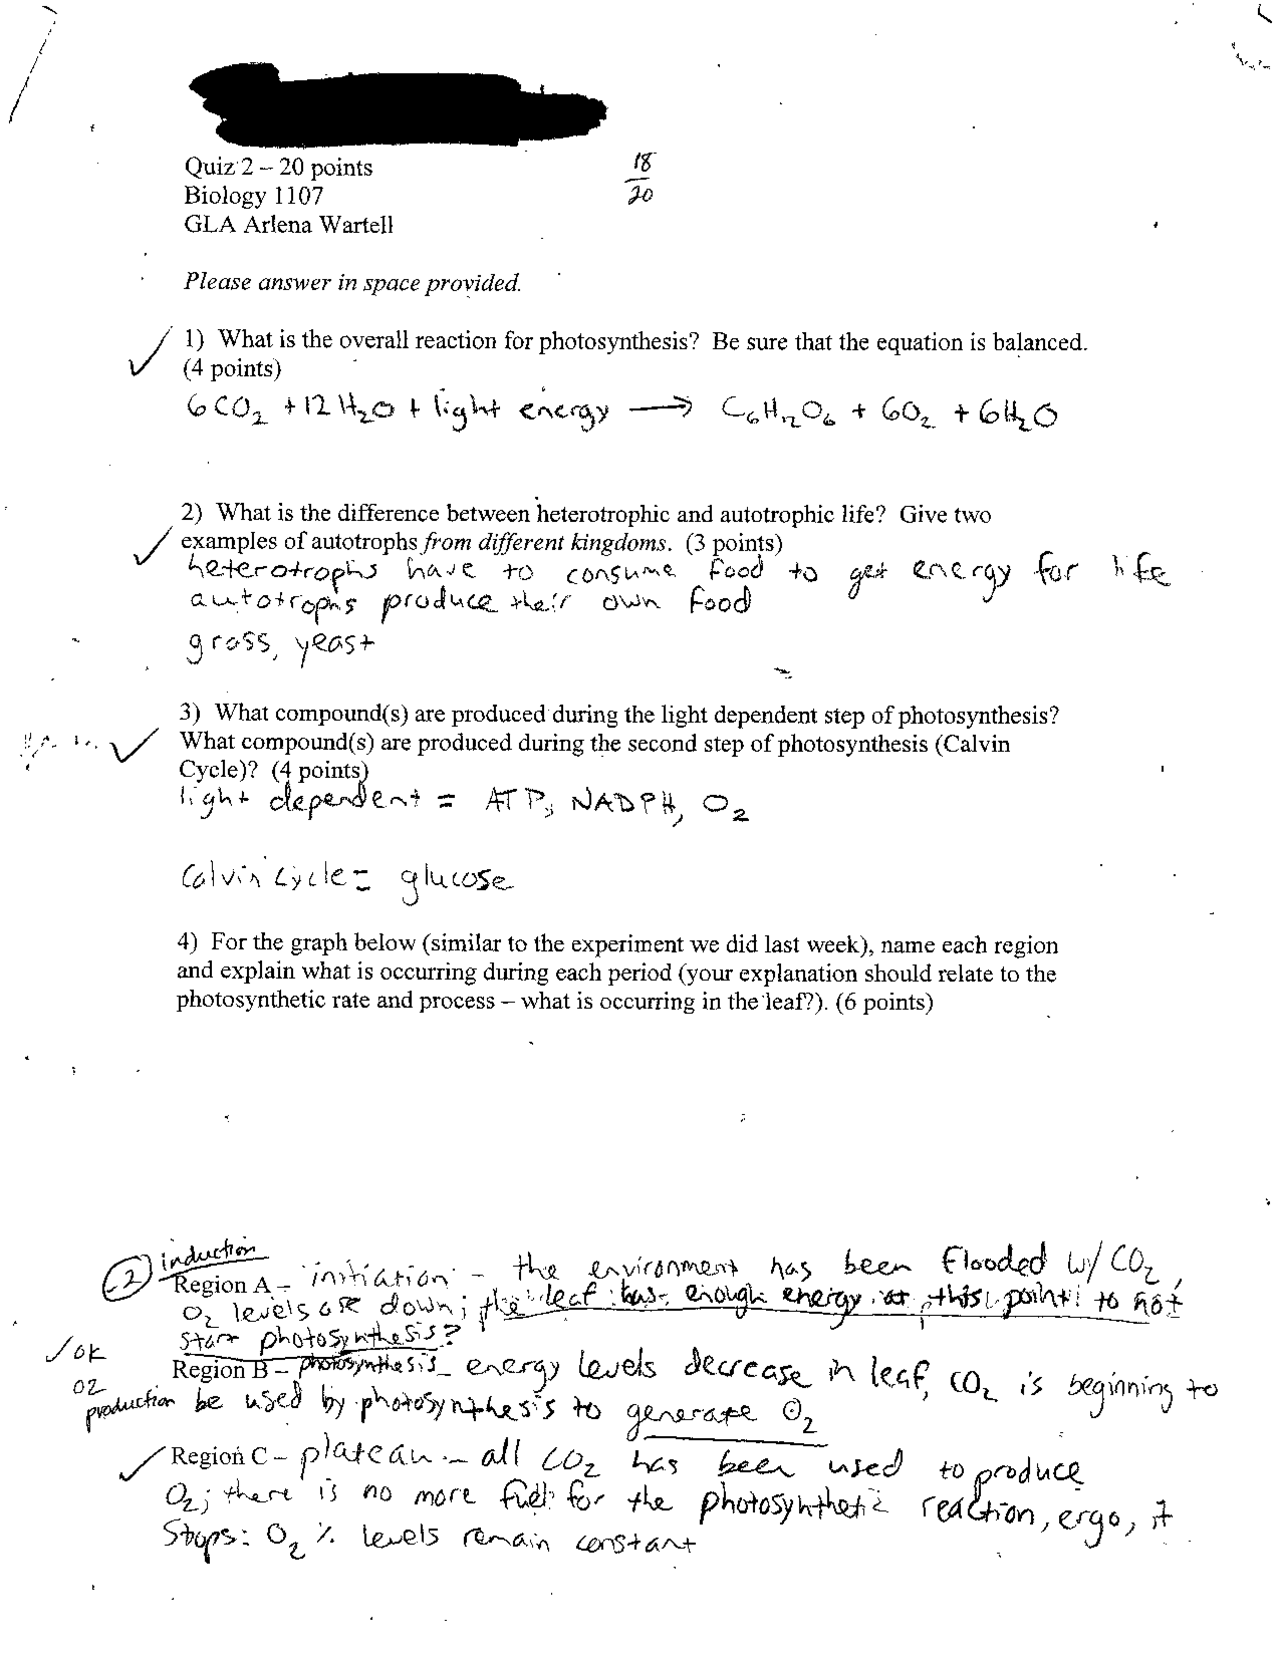 Quiz 2 – 20 points
18
20
Biology 1107
GLA Arlena Wartell
Please answer in space provided.
1) What is the overall reaction for photosynthesis? Be sure that the equation is balanced.
(4 points)
6CO₂ + 12H₂O + light energy → C₆H₁₂O₆ + 6O₂ + 6H₂O
2) What is the difference between heterotrophic and autotrophic life? Give two
examples of autotrophs from different kingdoms. (3 points)
heterotrophs have to consume food to get energy for life
autotrophs produce their own food
grass, yeast
3) What compound(s) are produced during the light dependent step of photosynthesis?
What compound(s) are produced during the second step of photosynthesis (Calvin
Cycle)? (4 points)
light dependent = ATP, NADPH, O₂
Calvin Cycle = glucose
4) For the graph below (similar to the experiment we did last week), name each region
and explain what is occurring during each period (your explanation should relate to the
photosynthetic rate and process – what is occurring in the leaf?). (6 points)
-2 induction
Region A – initiation - the environment has been flooded w/ CO₂,
O₂ levels are down; the leaf has enough energy at this point to not
start photosynthesis?
✓ OK
Region B – photosynthesis - energy levels decrease in leaf, CO₂ is beginning to
O2
production
be used by photosynthesis to generate O₂
Region C – plateau - all CO₂ has been used to produce
O₂; there is no more fuel for the photosynthetic reaction, ergo, it
stops: O₂ % levels remain constant